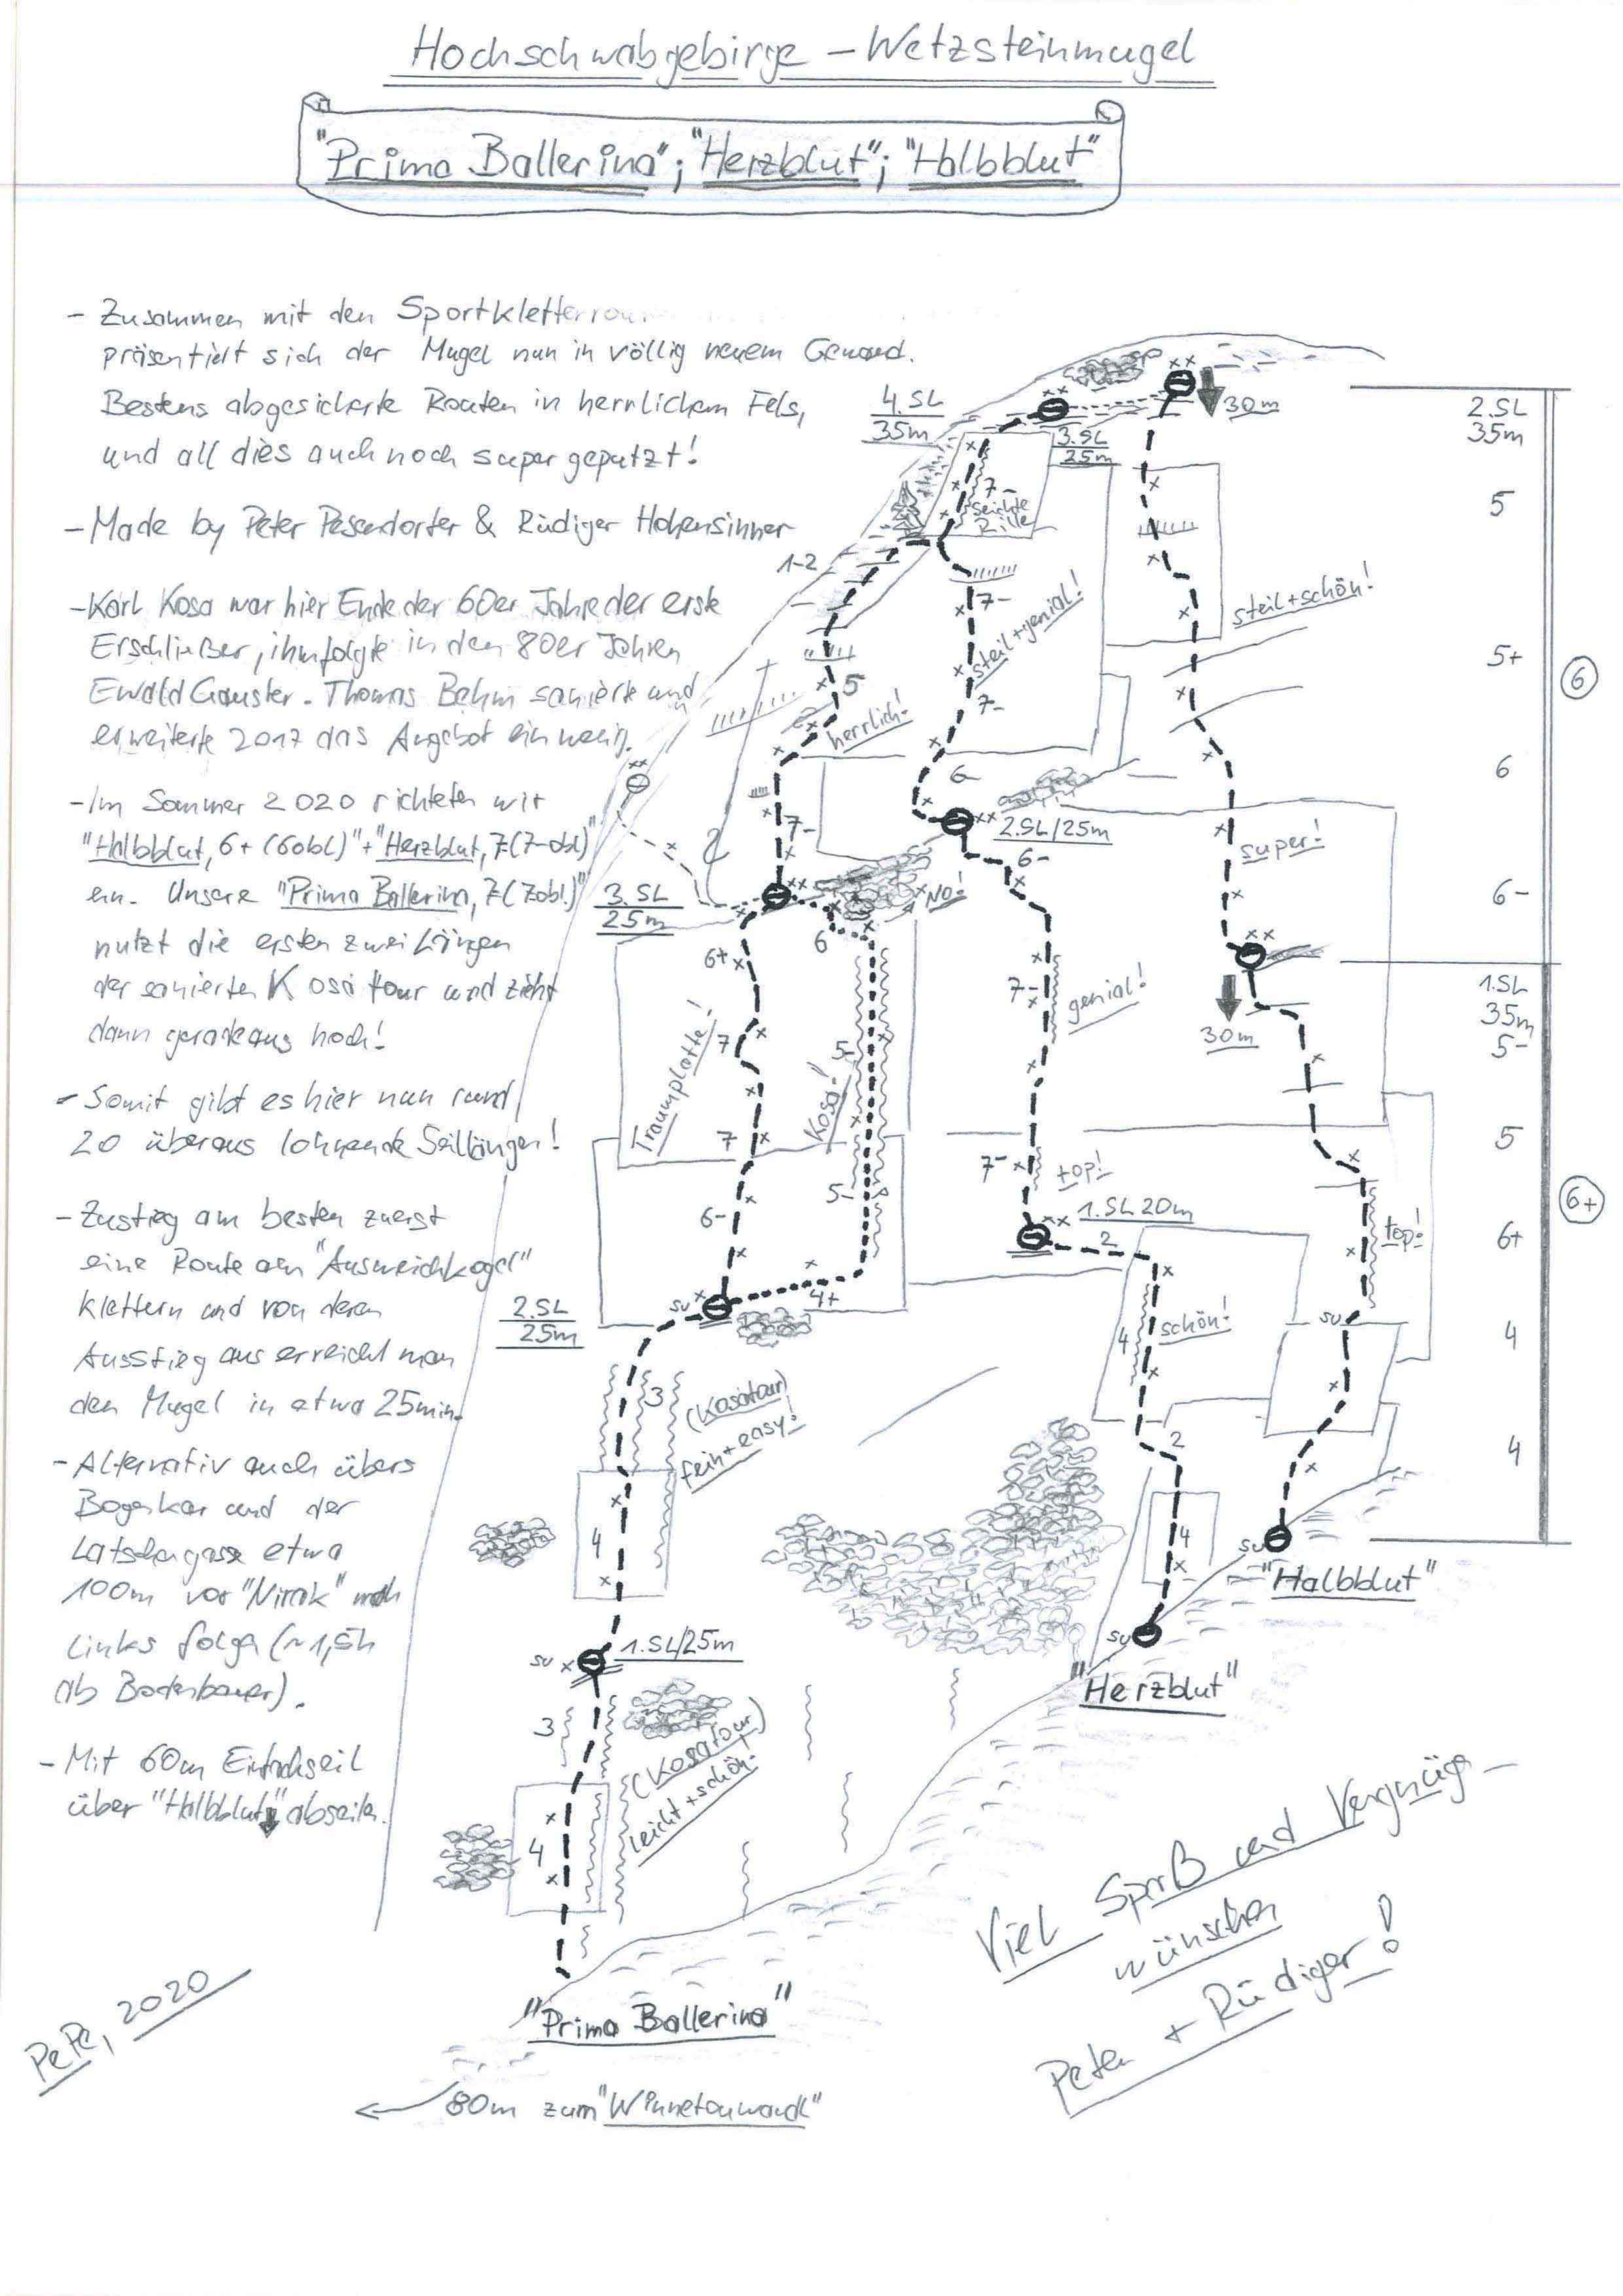 Hochschwabgebirge – Wetzsteinmugel
"Prima Ballerina"; "Herzblut"; "Halbblut"
- Zusammen mit den Sportkletterrou
präsentiert sich der Mugel nun in völlig neuem Gewand.
Bestens abgesicherte Routen in herrlichem Fels,
und all dies auch noch super geputzt!
- Made by Peter Pesendorfer & Rüdiger Hohensinner
- Karl Kosa war hier Ende der 60er Jahre der erste
Erschließer, ihm folgte in den 80er Jahren
Ewald Gauster. Thomas Behm sanierte und
erweiterte 2017 das Angebot ein wenig.
- Im Sommer 2020 richteten wir
"Halbblut, 6+ (6obl)" + "Herzblut, 7- (7-obl)"
ein. Unsere "Prima Ballerina, 7- (7obl.)"
nutzt die ersten zwei Längen
der sanierten Kosa tour und zieht
dann geradeaus hoch!
- Somit gibt es hier nun rund
20 überaus lohnende Seillängen!
- Zustieg am besten zuerst
eine Route am "Ausweichkogel"
klettern und von deren
Ausstieg aus erreicht man
den Mugel in etwa 25min.
- Alternativ auch übers
Bogenkar und der
Latschengasse etwa
100m vor "Nirak" nach
links folgen (~1,5h
ab Bodenbauer).
- Mit 60m Einfachseil
über "Halbblut" abseilen.
PePe, 2020
4.SL
35m
3.SL
25m
30m
7-
seichte
Rille
1-2
7-
steil+genial!
7-
5
herrlich!
2
7-
6-
2.SL/25m
6-
3.SL
25m
NO!
6
6+
7
Traumplatte!
7
6-
5-
Kosa!
5-
4+
7-
genial!
7-
top!
1.SL 20m
2
4
schön!
2
4
su
"Herzblut"
su
2.SL
25m
3
(Kosatour)
fein+easy!
4
su
1.SL/25m
3
(Kosatour)
leicht+schön!
4
"Prima Ballerina"
80m zum "Winnetouwandl"
steil+schön!
super!
30m
top!
su
su
"Halbblut"
2.SL
35m
5
5+
6
6-
6
1.SL
35m
5-
5
6+
4
4
6+
Viel Spaß und Vergnüg –
wünschen
Peter + Rüdiger!